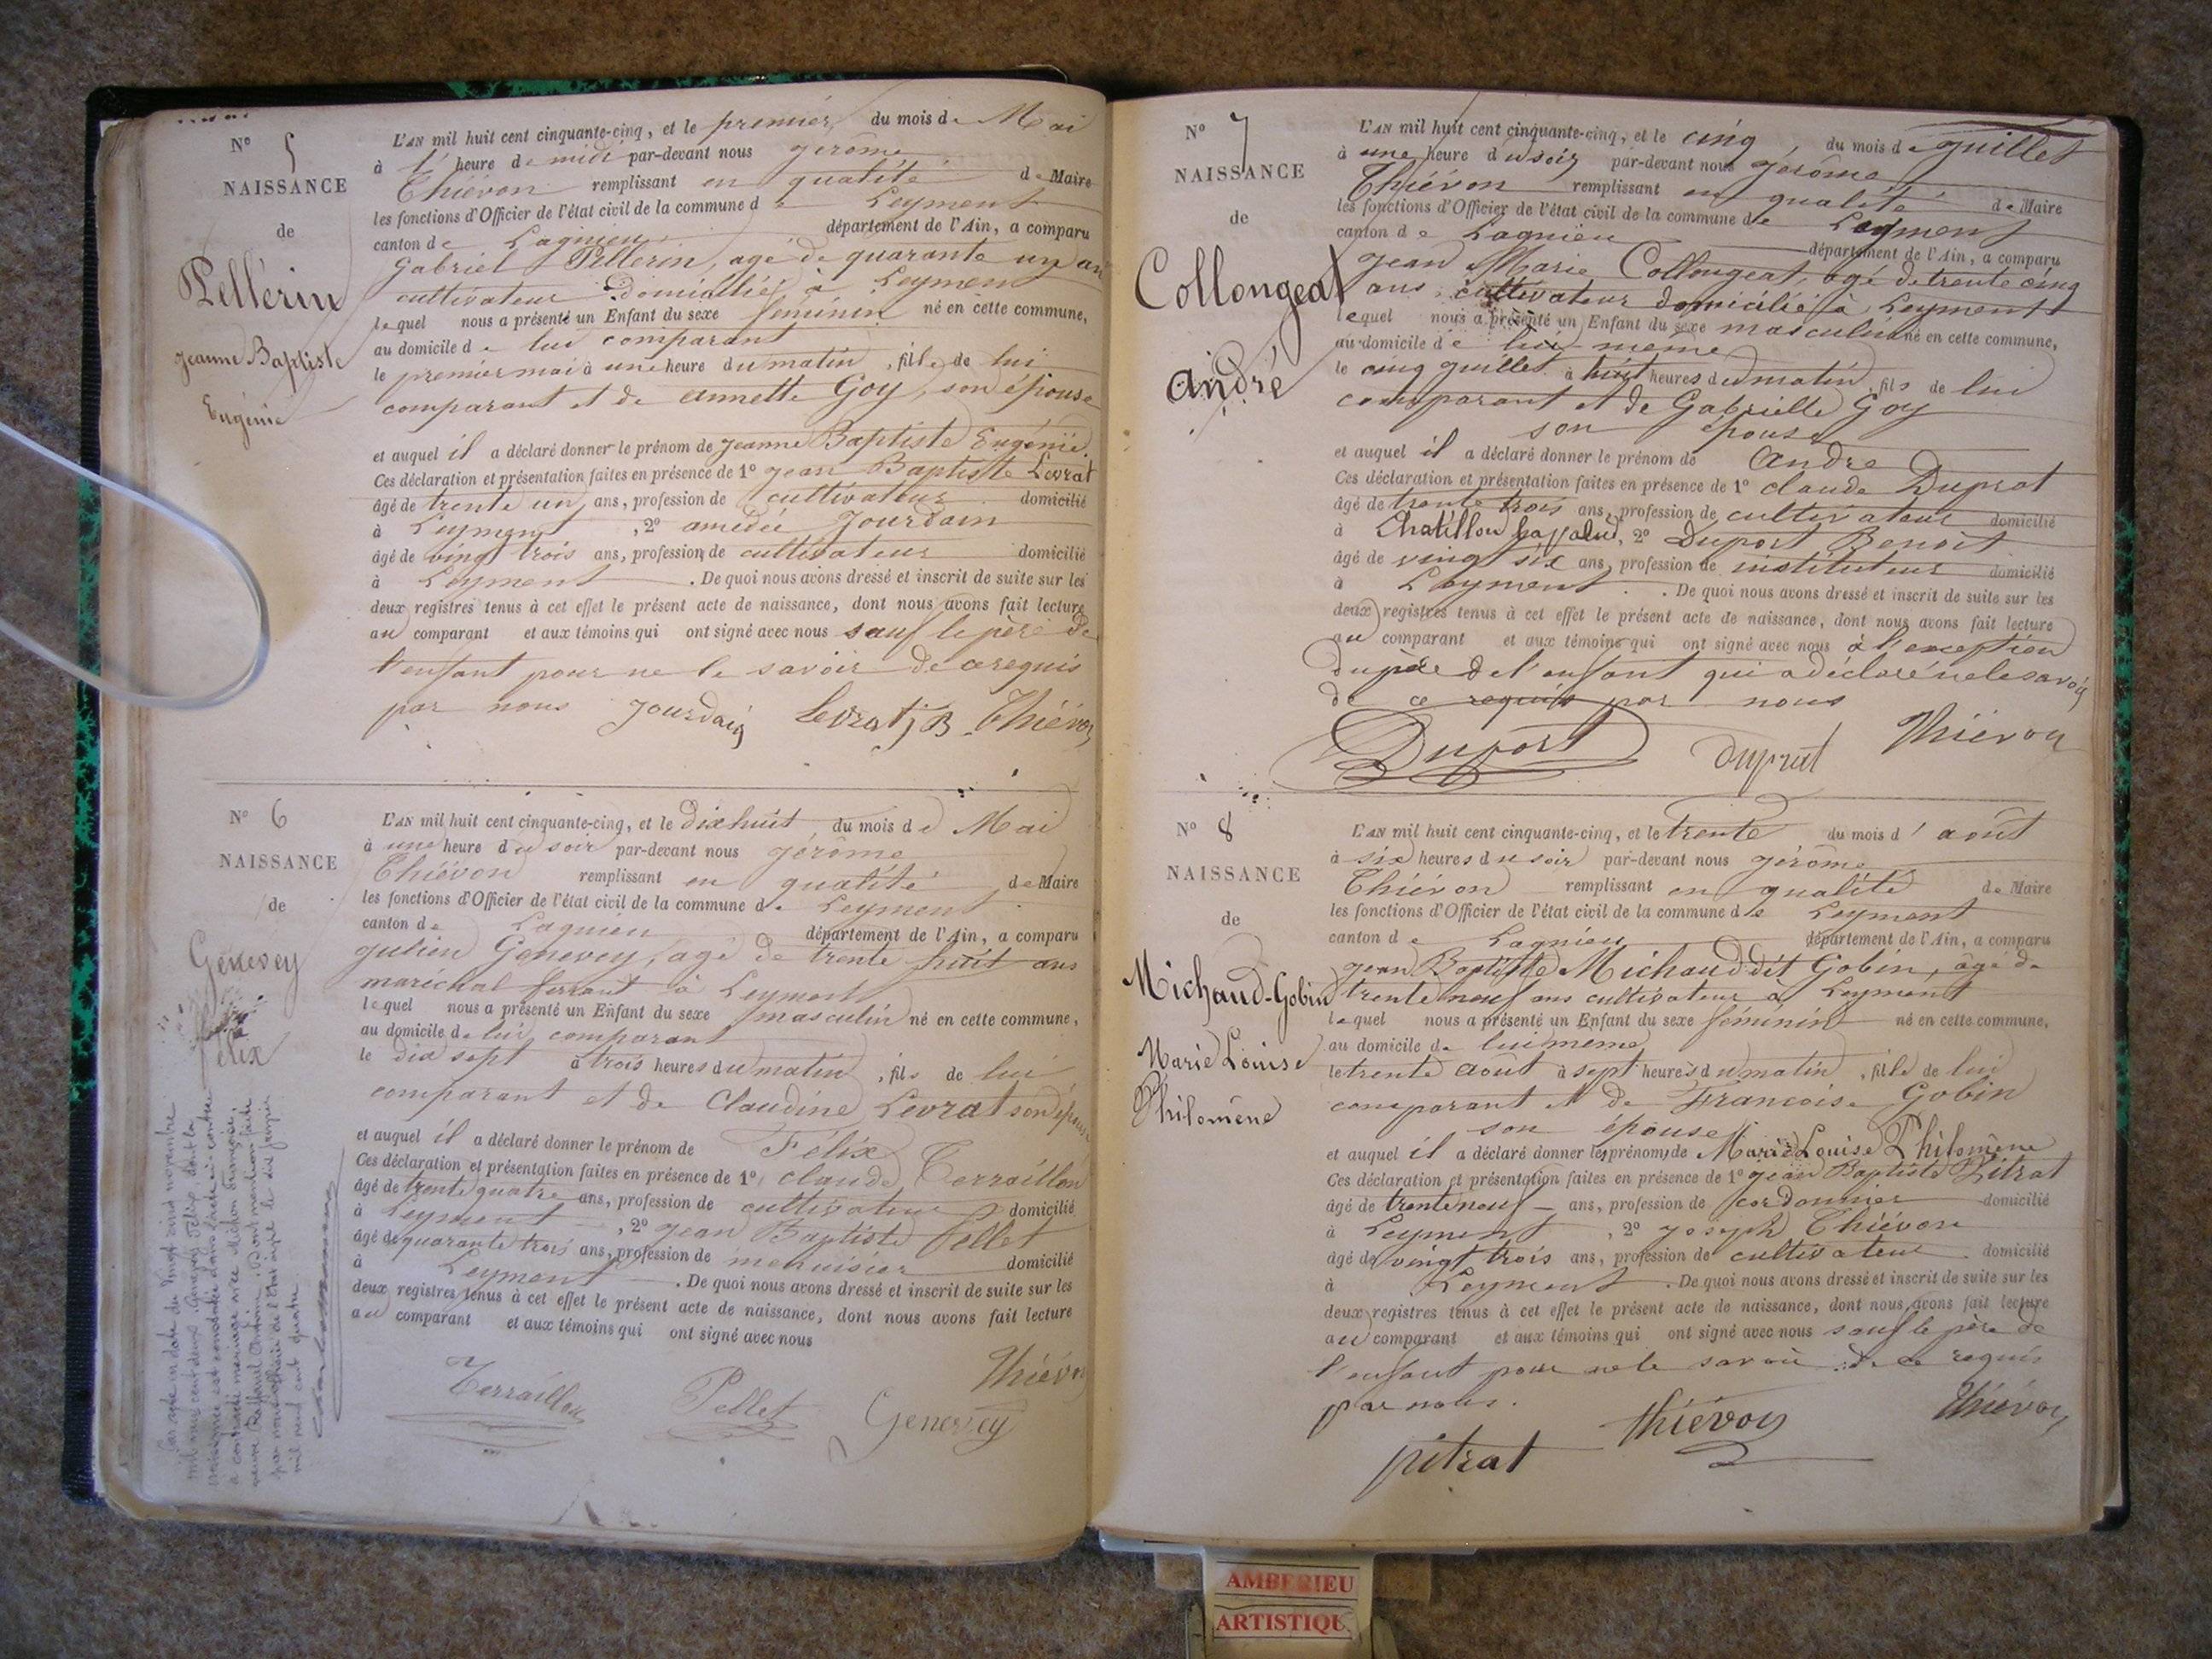 N° 5
NAISSANCE
de
Pellérin
Jeanne Baptiste
Eugénie
L'AN mil huit cent cinquante-cinq, et le premier du mois de Mai
à l' heure de midi par-devant nous jérôme
Thiévon remplissant en qualité de Maire
les fonctions d'Officier de l'état civil de la commune de Leyment
canton de Lagnieu département de l'Ain, a comparu
Gabriel Pellérin, agé de quarante un an
cultivateur domicilié à Leyment
lequel nous a présenté un Enfant du sexe féminin né en cette commune,
au domicile de lui comparant
le premier mai à une heure du matin, fille de lui
comparant et de annette Goy, son épouse
et auquel il a déclaré donner le prénom de jeanne Baptiste Eugénie.
Ces déclaration et présentation faites en présence de 1° jean Baptiste Levrat
âgé de trente un ans, profession de cultivateur domicilié
à Leyment, 2° amédée Jourdain
âgé de vingt trois ans, profession de cultivateur domicilié
à Leyment. De quoi nous avons dressé et inscrit de suite sur les
deux registres tenus à cet effet le présent acte de naissance, dont nous avons fait lecture
au comparant et aux témoins qui ont signé avec nous sauf le père de
l'enfant pour ne le savoir de ce requis
par nous Jourdain Levrat j B Thiévon
N° 6
NAISSANCE
de
Genevey
Félix
L'AN mil huit cent cinquante-cinq, et le dix huit du mois de Mai
à une heure du soir par-devant nous jérôme
Thiévon remplissant en qualité de Maire
les fonctions d'Officier de l'état civil de la commune de Leyment
canton de Lagnieu département de l'Ain, a comparu
julien Genevey, agé de trente huit ans
maréchal ferrant à Leyment
lequel nous a présenté un Enfant du sexe masculin né en cette commune,
au domicile de lui comparant
le dix sept à trois heures du matin, fils de lui
comparant et de Claudine Levrat son épouse
et auquel il a déclaré donner le prénom de Félix
Ces déclaration et présentation faites en présence de 1° claude Terraillon
âgé de trente quatre ans, profession de cultivateur domicilié
à Leyment, 2° jean Baptiste Pellet
âgé de quarante trois ans, profession de menuisier domicilié
à Leyment. De quoi nous avons dressé et inscrit de suite sur les
deux registres tenus à cet effet le présent acte de naissance, dont nous avons fait lecture
au comparant et aux témoins qui ont signé avec nous
Thiévon
Terraillon Pellet Genevey
Par acte en date du vingt cinq novembre
mil neuf cent deux, Genevey Félix, dont la
naissance est constatée dans l'acte ci-contre
a contracté mariage avec
mil neuf cent quatre
N° 7
NAISSANCE
de
Collongeat
andré
L'AN mil huit cent cinquante-cinq, et le cinq du mois de juillet
à une heure du soir par-devant nous jérôme
Thiévon remplissant en qualité de Maire
les fonctions d'Officier de l'état civil de la commune de Leyment
canton de Lagnieu département de l'Ain, a comparu
jean Marie Collongeat, agé de trente cinq
ans, cultivateur domicilié à Leyment
lequel nous a présenté un Enfant du sexe masculin né en cette commune,
au domicile de lui même
le cinq juillet à huit heures du matin, fils de lui
comparant et de Gabrielle Goy
son épouse
et auquel il a déclaré donner le prénom de andre
Ces déclaration et présentation faites en présence de 1° claude Duprat
âgé de trente trois ans, profession de cultivateur domicilié
à Chatillon la palud, 2° Duport Benoit
âgé de vingt six ans, profession de instituteur domicilié
à Leyment. De quoi nous avons dressé et inscrit de suite sur les
deux registres tenus à cet effet le présent acte de naissance, dont nous avons fait lecture
au comparant et aux témoins qui ont signé avec nous à l'exception
du père de l'enfant qui a déclaré ne le savoir
de ce requis par nous
Duport duprat Thiévon
N° 8
NAISSANCE
de
Michaud-Gobin
Marie Louise
Philomène
L'AN mil huit cent cinquante-cinq, et le trente du mois d' août
à six heures du soir par-devant nous jérôme
Thiévon remplissant en qualité de Maire
les fonctions d'Officier de l'état civil de la commune de Leyment
canton de Lagnieu département de l'Ain, a comparu
jean Baptiste Michaud dit Gobin, âgé de
trente neuf ans cultivateur à Leyment
lequel nous a présenté un Enfant du sexe féminin né en cette commune,
au domicile de lui même
le trente août à sept heures du matin, fille de lui
comparant et de Francoise Gobin
son épouse
et auquel il a déclaré donner les prénoms de Marie Louise Philomène
Ces déclaration et présentation faites en présence de 1° jean Baptiste Pitrat
âgé de trente neuf ans, profession de cordonnier domicilié
à Leyment, 2° joseph Thiévon
âgé de vingt trois ans, profession de cultivateur domicilié
à Leyment. De quoi nous avons dressé et inscrit de suite sur les
deux registres tenus à cet effet le présent acte de naissance, dont nous avons fait lecture
au comparant et aux témoins qui ont signé avec nous sauf le père de
l'enfant pour ne le savoir de ce requis
par nous.
pitrat thiévon Thiévon
AMBERIEU
ARTISTIQUE